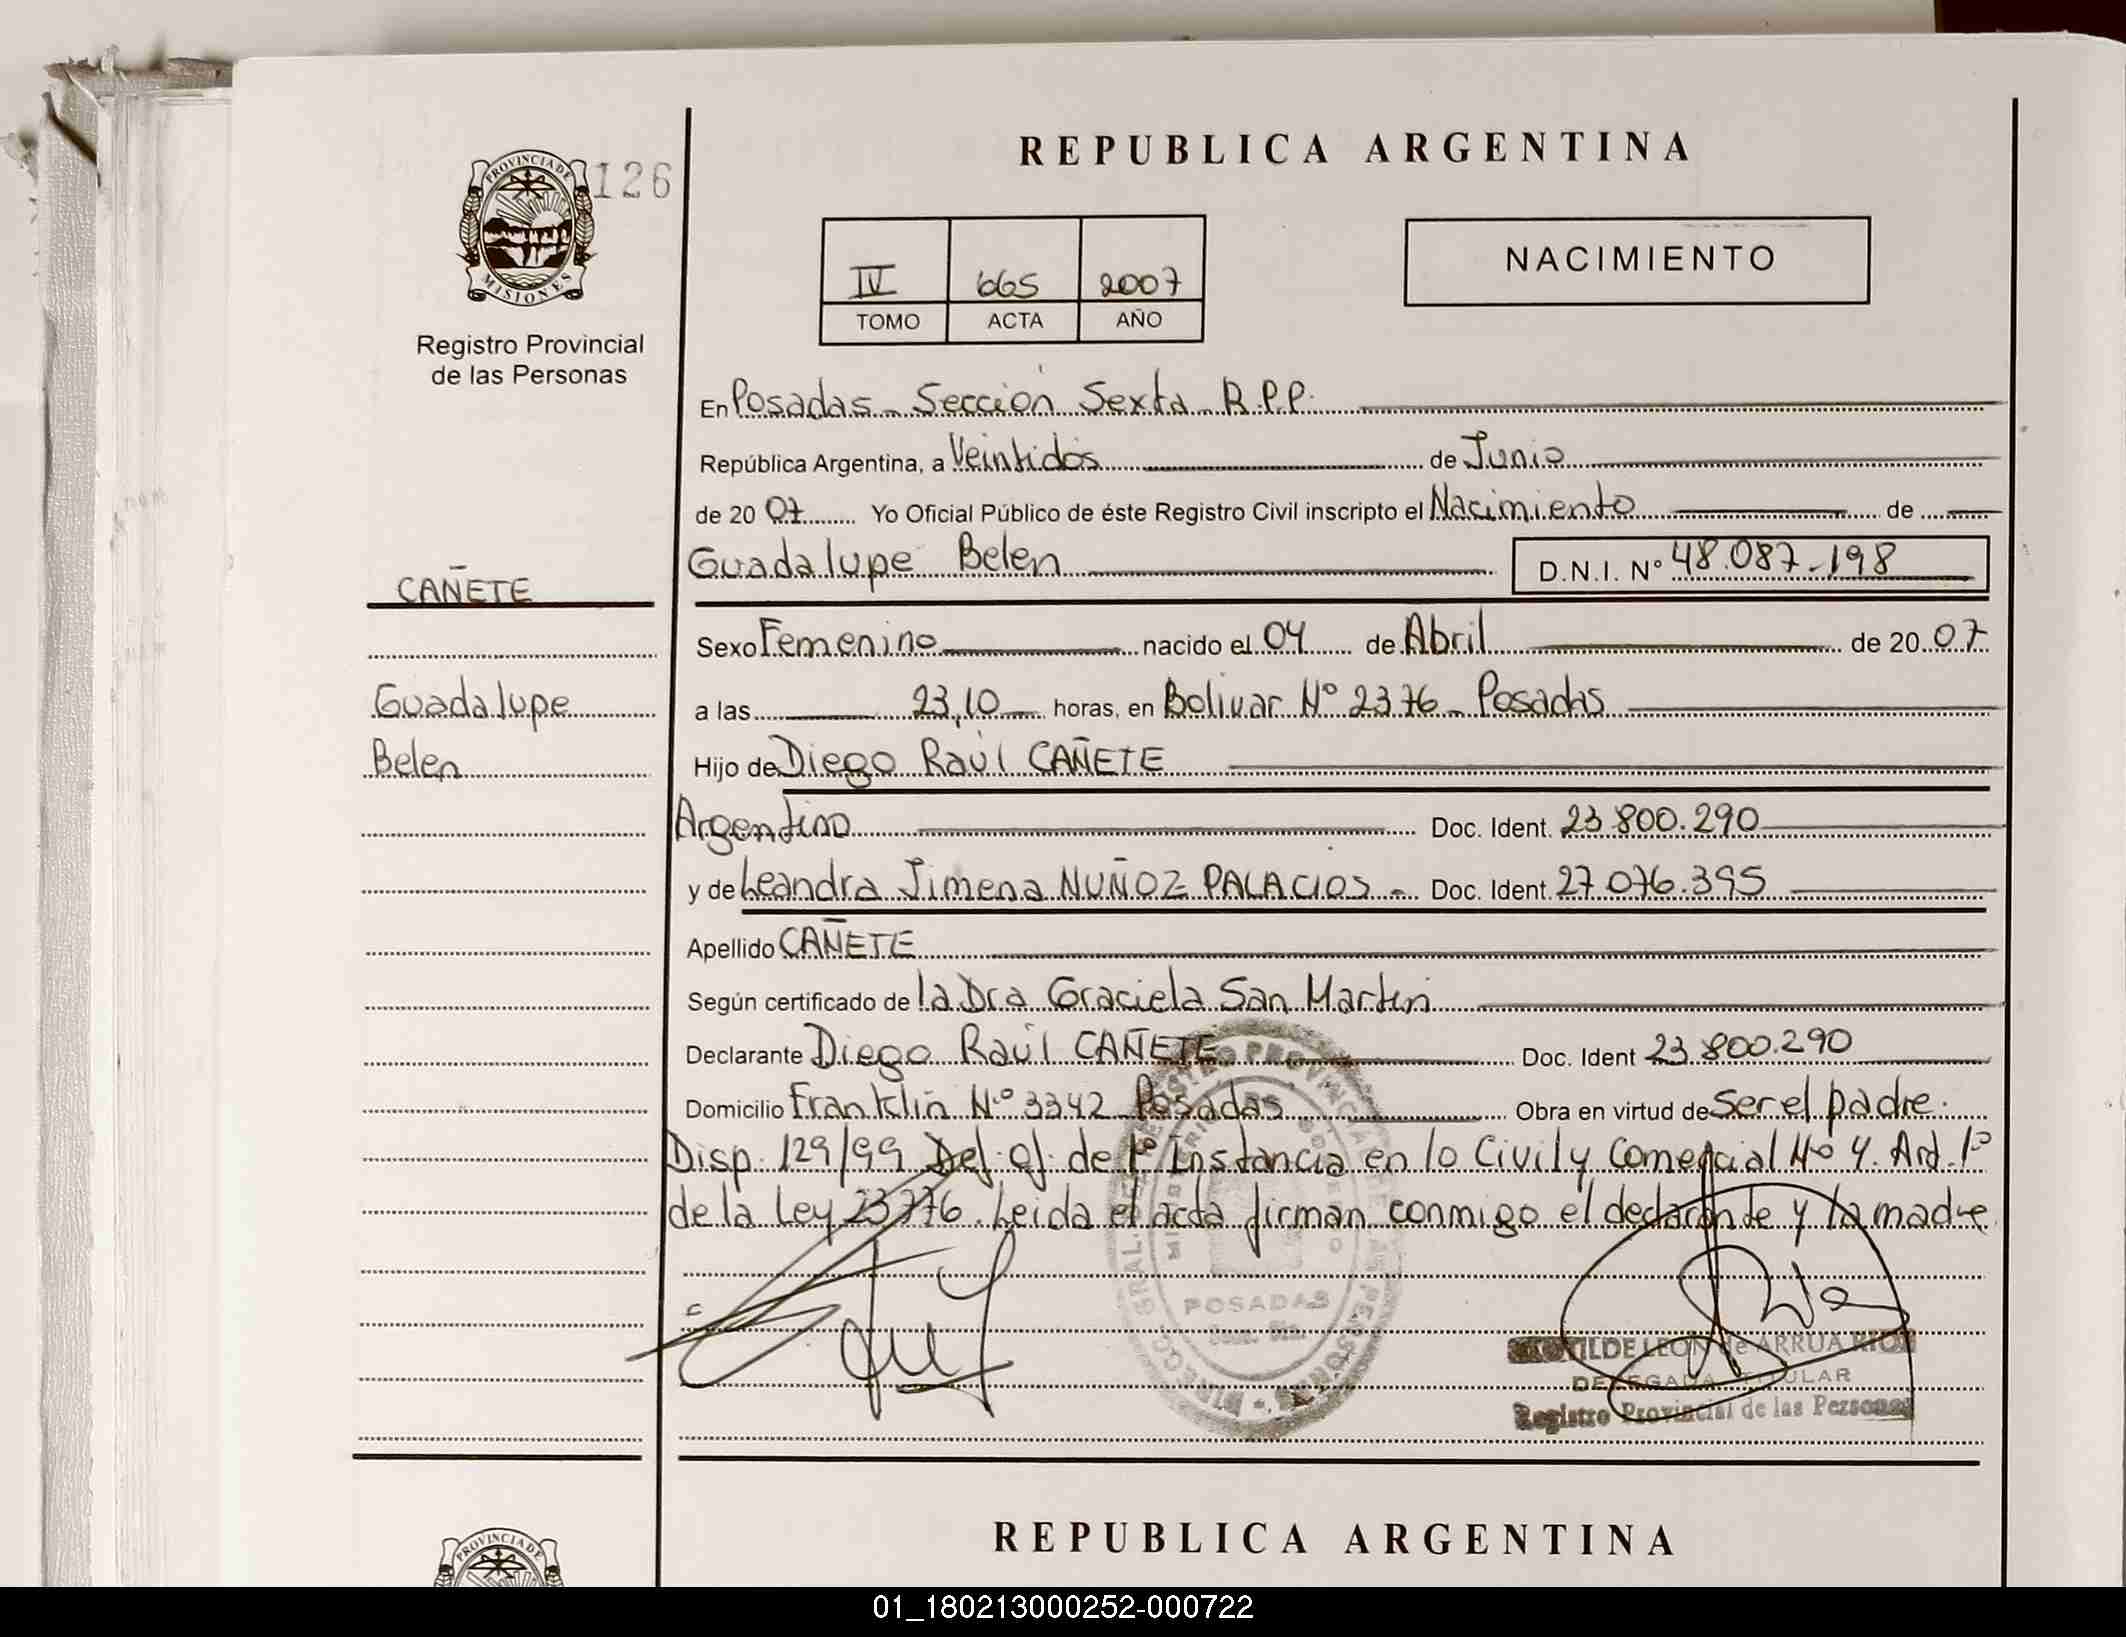 REPUBLICA ARGENTINA
PROVINCIA DE
MISIONES
126
Registro Provincial
de las Personas
IV 665 2007
TOMO ACTA AÑO
NACIMIENTO
En Posadas - Sección Sexta R.P.P.
República Argentina, a Veintidós de Junio
de 2007 Yo Oficial Público de éste Registro Civil inscripto el Nacimiento de
Guadalupe Belen D.N.I. Nº 48.087.198
CAÑETE
Sexo Femenino nacido el 04 de Abril de 2007
Guadalupe
a las 23,10 horas, en Bolivar Nº 2376 - Posadas
Belen
Hijo de Diego Raúl CAÑETE
Argentino Doc. Ident. 23.800.290
y de Leandra Jimena NUÑOZ PALACIOS - Doc. Ident. 27.076.395
Apellido CAÑETE
Según certificado de la Dra Graciela San Martin
Declarante Diego Raúl CAÑETE Doc. Ident 23.800.290
Domicilio Franklin Nº 3342 Posadas Obra en virtud de Ser el padre.
Disp. 129/99 de 1º Instancia en lo Civil y Comercial Nº 4. Art. 1º
de la Ley 23776. Leida el acta firman conmigo el declarante y la madre
POSADAS
LEON de ARRUA RIOS
DELEGADA TITULAR
Registro Provincial de las Personas
REPUBLICA ARGENTINA
PROVINCIA DE
01_180213000252-000722